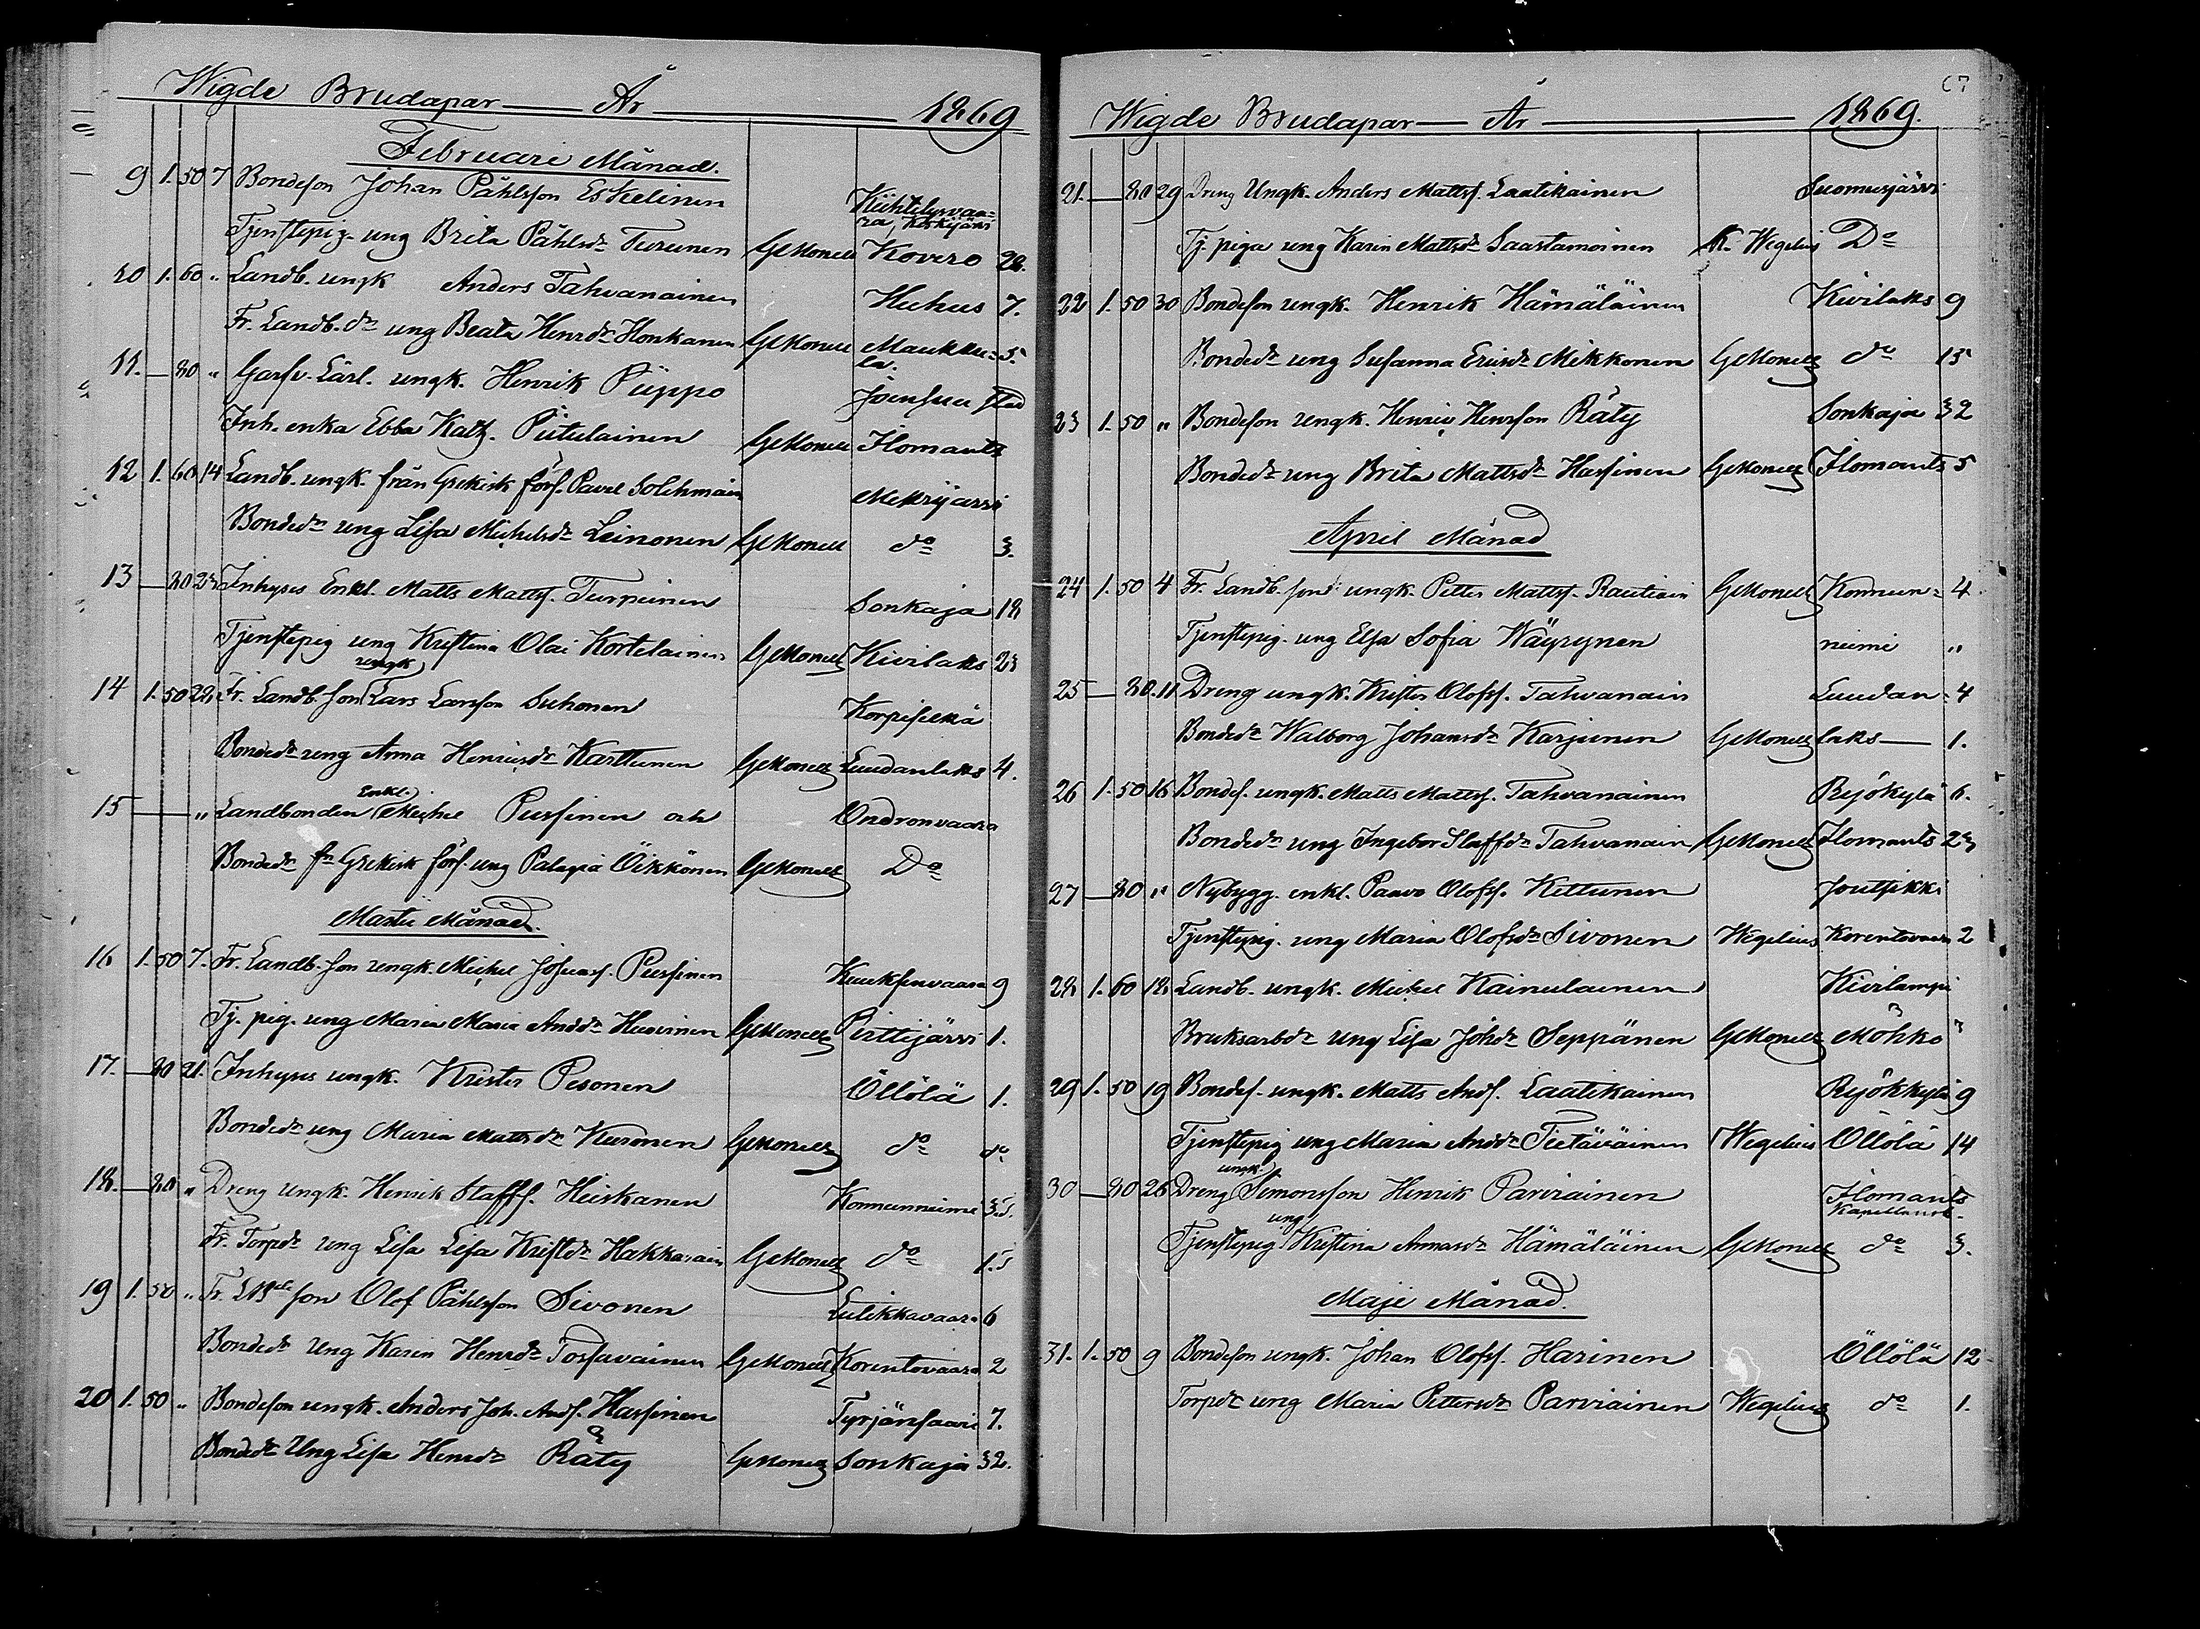 Wigde Brudapar — År — 1869
Februari Månad.
9 1. 50 7 Bondeson Johan Påhlsson Eskelinen Kiihtelysvaa=
ra, Koskijärvi
Tjenstepig. ung Brita Påhlsdr Turunen GMonell Kovero 28.
10 1. 60 " Landb. ungk Anders Tahvanainen Huhus 7.
Fr. Landb. dr ung Beata Henrsdr Honkanen GMonell Maukku= 5.
la.
11. — 80 " Garfv. Lärl. ungk. Henrik Piippo Joensuu stad
Inh. enka Ebba Kath. Piitulainen GMonell Ilomants
12 1. 60 14 Landb. ungk. från Grekisk förs. Pavel Solehmain Mekrijärvi
Bondedr ung Lisa Michelsdr Leinonen GMonell do 3.
13 — 80 23 Inhyses Enkl. Matts Mattss. Turpeinen Sonkaja 18
Tjenstepig ung Kristina Olai Kortelainen GMonell Kivilaks 23
14 1. 50 28 Fr. Landb. son ungk Lars Larsson Suhonen Korpiselkä
Bondedr ung Anna Henriksdr Karttunen GMonell Luudanlaks 4.
15 — " Landbonden Enkl. Michel Pussinen och Ondronvaara
Bondedr fr Grekisk förs. ung Palagia Öikkönen GMonell Do
Martii Månad.
16 1. 50 7. Fr. Landb. son ungk. Michel Josefss. Pussinen Kuuksenvaara 9
Tj. pig. ung Maria Maria Andsdr Huovinen GMonell Pirttijärvi 1.
17. — 80 21. Inhyses ungk. Krister Pesonen Öllölä 1.
Bondedr ung Maria Mattsdr Kuronen GMonell do do
18. — 80 " Dreng ungk. Henrik Staffs. Heiskanen Konnunniemi 35.
Fr. Torpdr ung Lisa Lisa Kristdr Hakkarain GMonell do 15
19 1. 50 " Fr. LBde son Olof Påhlsson Sivonen Liilikkavaara 6
Bondedr Ung Karin Henrsdr Tossavainen GMonell Korentovaara 2
20 1. 50 " Bondeson ungk. Anders Joh. Ands. Hassinen Tyrjänsaari 7.
Bondedr Ung Lisa Henrsdr Räty GMonell Sonkaja 32.
67
Wigde Brudapar — År — 1869.
21. — 80 29 Dreng Ungk. Anders Mattss. Laatikainen Suomusjärvi
Tj. piga ung Karin Mattsdr Saastamoinen K. Wegelius Do
22 1. 50 30 Bondeson ungk. Henrik Hämäläinen Kivilaks 9
Bondedr ung Susanna Ericsdr Mikkonen GMonell do 15
23 1. 50 " Bondeson ungk. Henric Henrsson Räty Sonkaja 32
Bondedr ung Brita Mattsdr Hassinen GMonell Ilomants 5
April Månad
24 1. 50 4 Fr. Landb. son ungk. Petter Mattss. Rautiain GMonell Konnun= 4
Tjenstepig. ung Elsa Sofia Wäyrynen niemi "
25 — 80. 11 Dreng ungk. Krister Olofss. Tahvanain Luudan= 4
Bondedr Walborg Johansdr Karjunen GMonell laks — 1.
26 1. 50 16 Bondes. ungk. Matts Mattss. Tahvanainen Ryökylä 6.
Bondedr ung Ingebor Staffsdr Tahvanain GMonell Ilomants 23
27 — 80 " Nybygg. enkl. Paavo Olofss. Kettunen Joutsikki
Tjenstepig. ung Maria Olofsdr Sivonen Wegelius Korentovaara 2
28 1. 60 18 Landb. ungk. Michel Kainulainen Kivilampi
Bruksarbdr Ung Lisa Johdr Seppänen GMonell Möhkö "
29 1. 50 19 Bondes. ungk. Matts Ands. Laatikainen Ryökkylä 9
Tjenstepig ung Maria Andsdr Tietäväinen Wegelius Öllölä 14
30 — 80 26 Dreng ungk. Simonsson Henrik Parviainen Ilomants
Kapellansb.
Tjenstepig ung Kristina Annasdr Hämäläinen GMonell do 3.
Maji Månad.
31. 1. 50 9 Bondeson ungk. Johan Olofss. Harinen Öllölä 12
Torpdr ung Maria Pettersdr Parviainen Wegelius do 1.